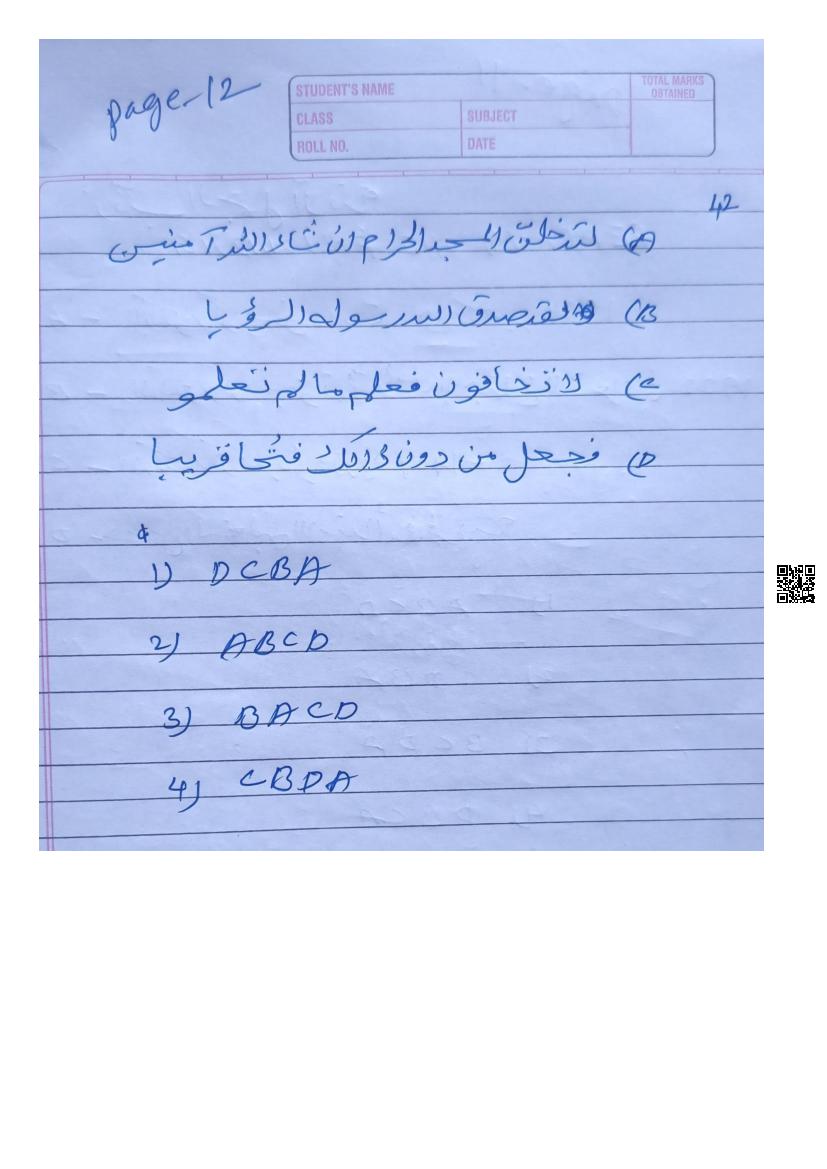 page-12
STUDENT'S NAME
TOTAL MARKS OBTAINED
CLASS
SUBJECT
ROLL NO.
DATE
42
A) لتدخلنّ المسجد الحرام ان شاء اللہ آمنين
B) لقد صدق اللہ رسوله الرؤيا
C) لا تخافون فعلم مالم تعلمو
D) فجعل من دون ذالك فتحا قريبا
1) DCBA
2) ABCD
3) BACD
4) CBDA